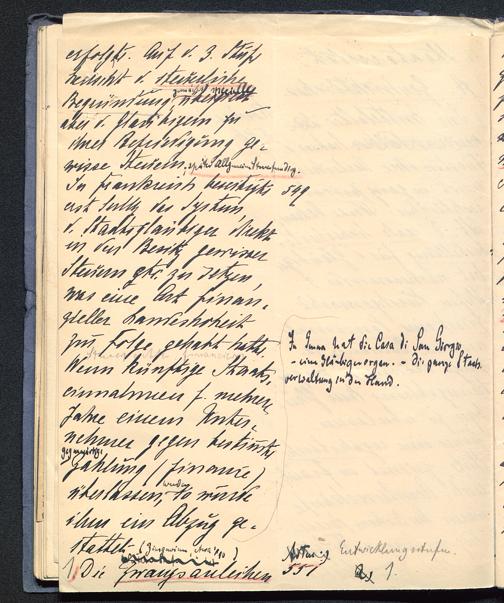 erfolgte. Auf d. 3. Stufe
beruht d. steuerliche
Begründung,
aber d. Gläubigern zu
ihrer Befriedigung ge-
wisse Steuern, später Allgemein
In Frankreich beseitigte 549
erst Sully das System
d. Staatsgläubiger direkt
in den Besitz gewisser
Steuern etc. zu setzen,
was eine Art finan-
zieller Landeshoheit
zur Folge gehabt hatte.
Wenn künftige Staats-
einnahmen f. mehrere
Jahre einem Unter-
nehmer gegen bestimmte
gegenwärtige
Zahlung (Finance)
überlassen wurden, so wurde
ihm ein Abzug ge-
stattet.
1. Die Zwangsanleihen
In Genua hat die Casa di San Giorgio
- ein Gläubigerorgan - die ganze Staats-
verwaltung in der Hand.
551
Entwicklungsstufen.
1.